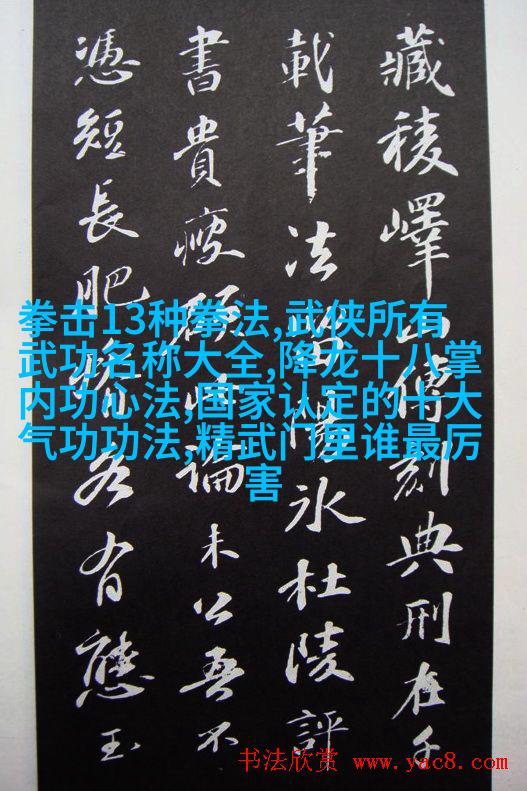 藏稜嶧山傳刻典刑在千
載筆法留陽冰杜陵評
書貴瘦硬此論未公吾不
憑短長肥瘠各有態玉
拳击13种拳法,武侠所有
武功名称大全,降龙十八掌
内功心法,国家认定的十大
气功功法,精武门里谁最厉
害
书法欣赏 www.yac8.com